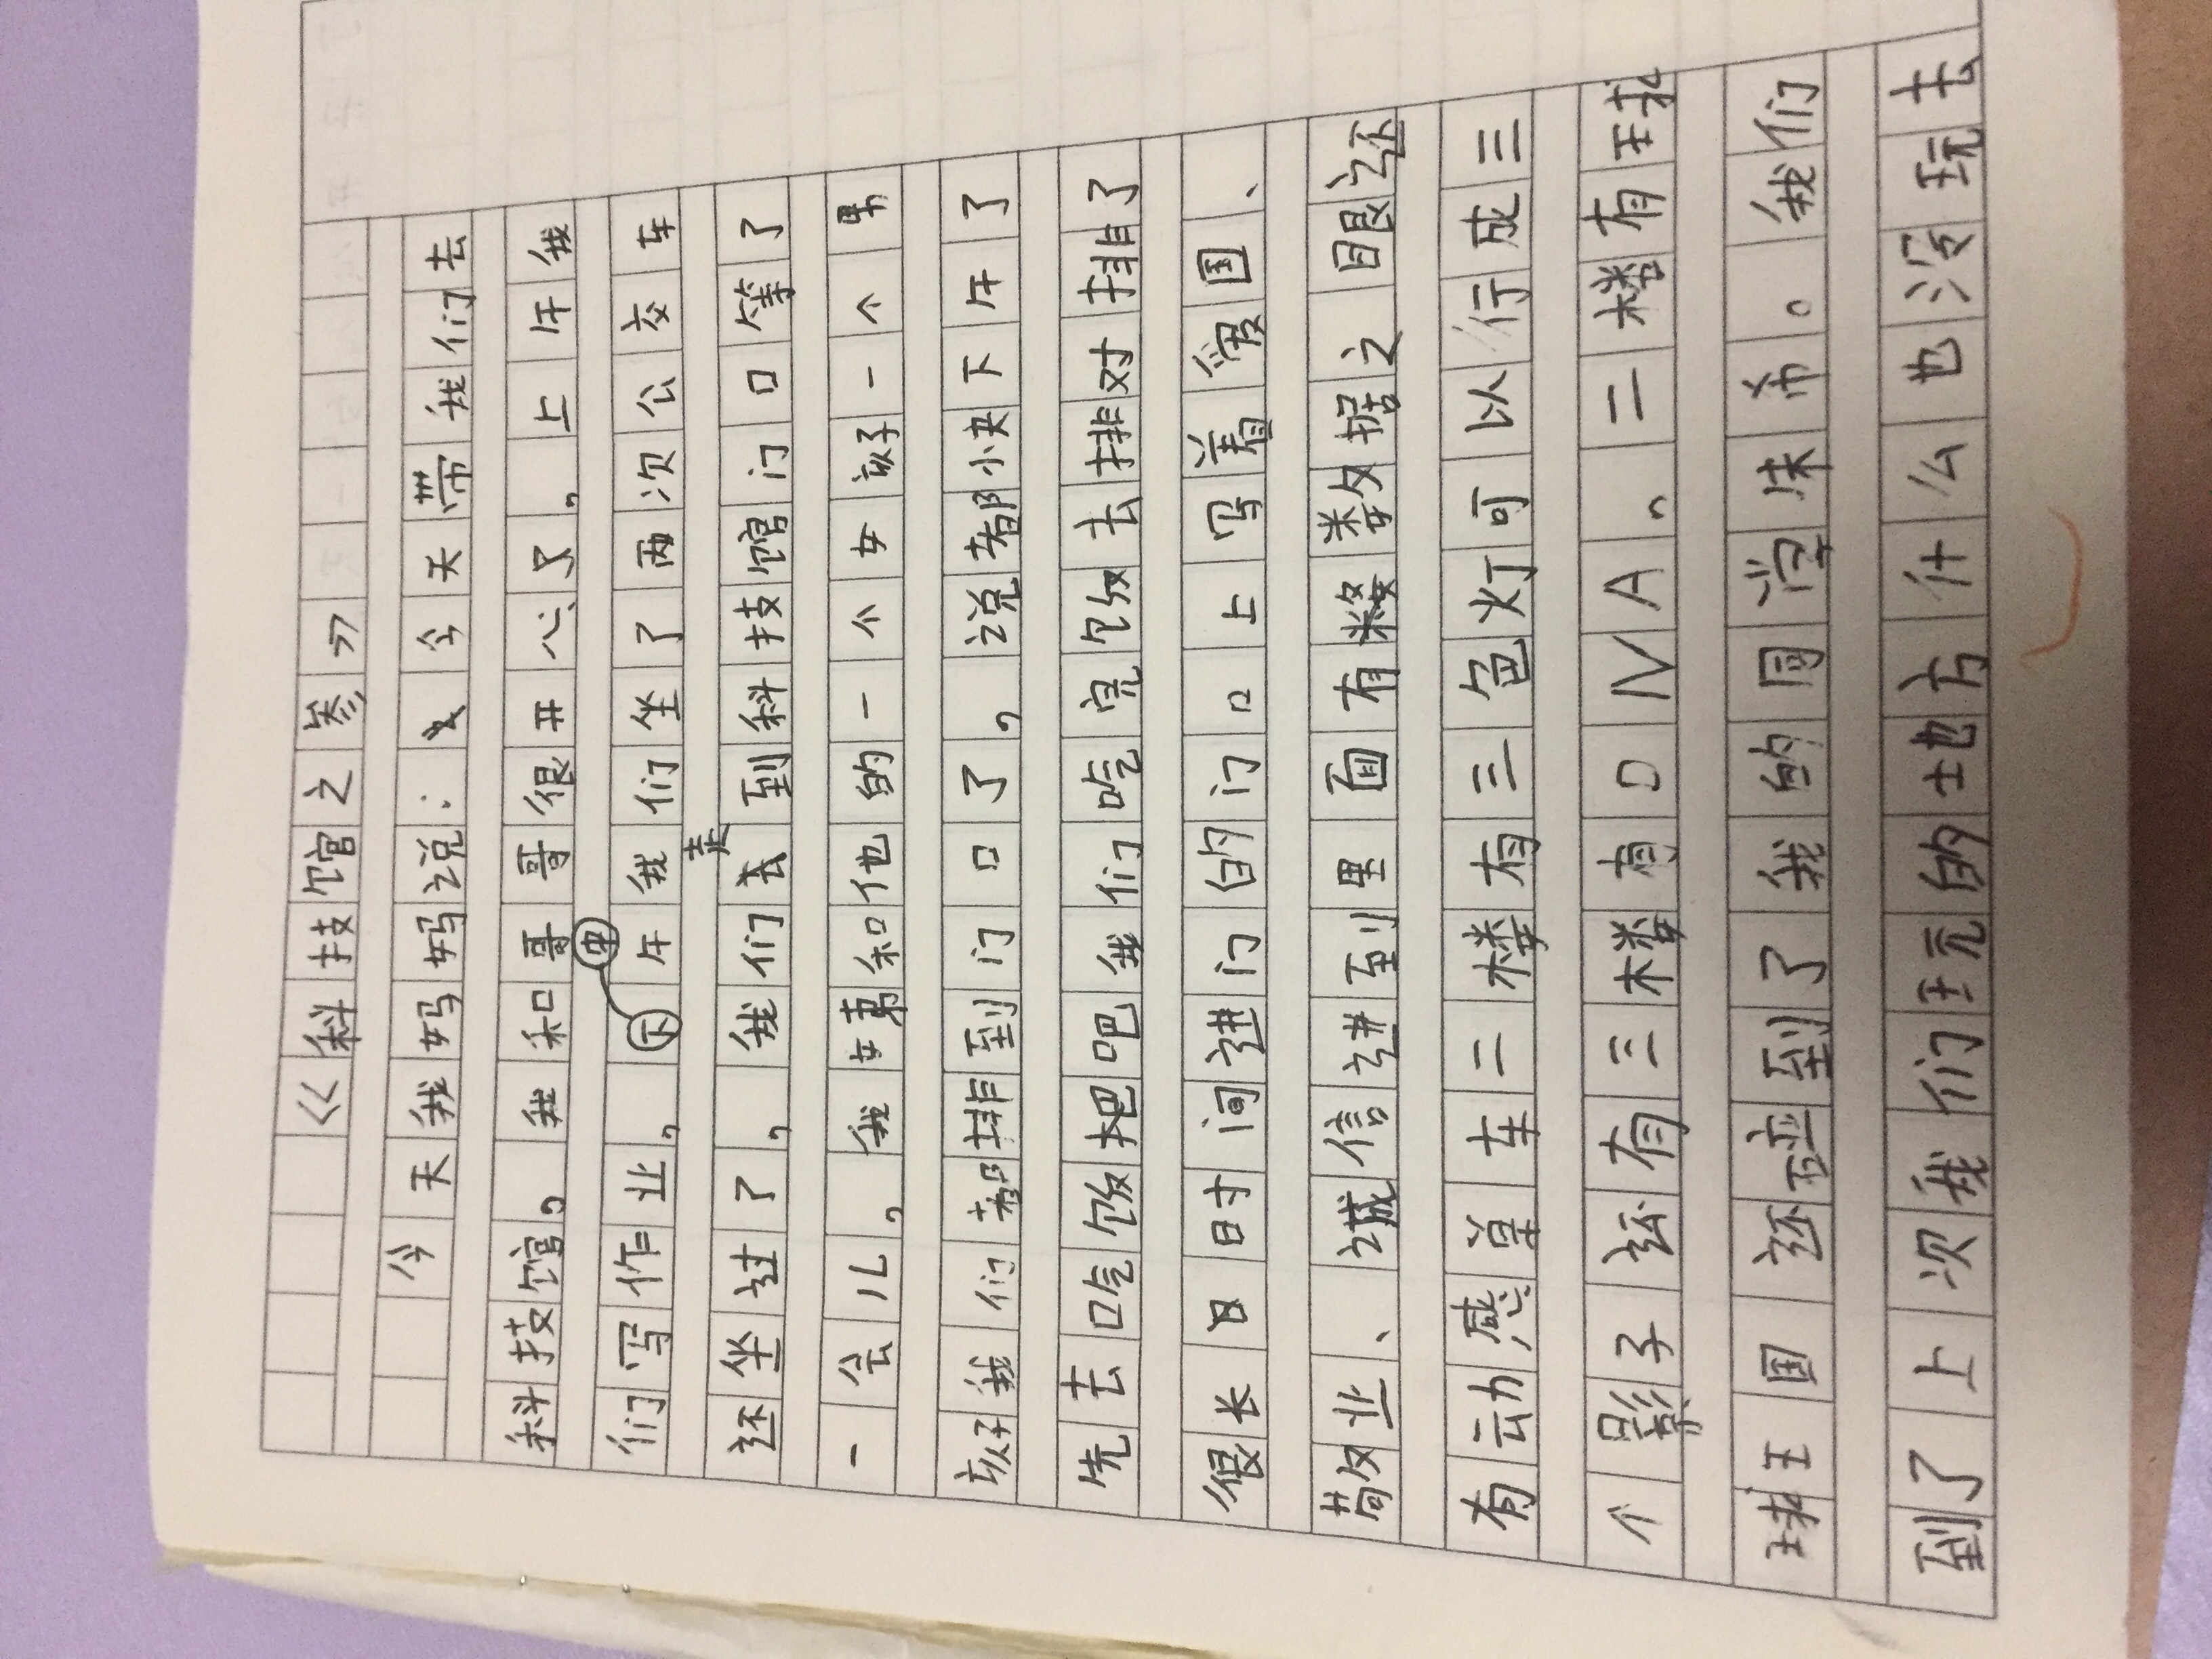 《科技馆之参》
今天我妈妈说：今天带我们去
科技馆。我和哥哥很开心了。上午我
们写作业，中午我们坐了两次公交车
还坐过了，我们走到科技馆门口等了
一会儿，我和他的一个女孩一个男
孩我们都排到门口了，说都快下午了
先去吃饭把吧我们吃完饭去排对排了
很长日时间进门的门口上写着爱国、
敬业、诚信进到里面有数据之眼还
有动感单车二楼有三色灯可以行成三
个影子还有三楼有DNA。二楼有球
球王国还碰到了我的同学希。我们
到了上次我们玩的地方什么也没玩去